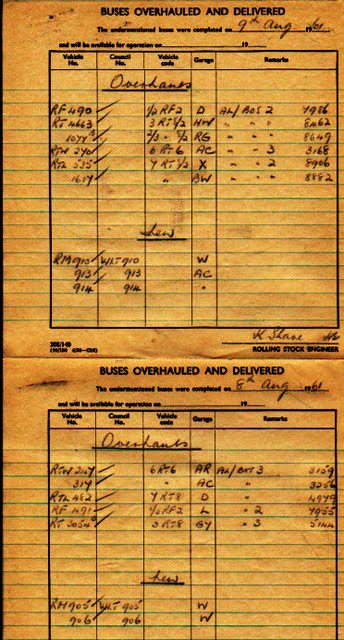 BUSES OVERHAULED AND DELIVERED
The undermentioned buses were completed on 9th Aug 1961
and will be available for operation on 19
Vehicle No. Council No. Vehicle code Garage Remarks
Overhauls
RF 490 1/2 RF2 D AL/BOS 2 7986
RT 4663 3 RT 1/2 HW " " " 8462
1077 2/3 - 1/2 RG " " " 8649
RTW 240 6 RT6 AC " " 3 3168
RTL 535 7 RT 1/2 X " " 2 8906
1657 " BW " " 8882
New
RM 910 WLT 910 W
913 913 AC
914 914 "
K Shave
ROLLING STOCK ENGINEER
BUSES OVERHAULED AND DELIVERED
The undermentioned buses were completed on 8th Aug 1961
and will be available for operation on 19
Vehicle No. Council No. Vehicle code Garage Remarks
Overhauls
RTW 267 6 RT6 AR AL/BAT 3 3159
317 " AC " 3256
RTL 482 7 RT8 D " 4979
RF 491 1/2 RF2 L " 2 7955
RT 3054 3 RT8 GY " 3 5144
New
RM 905 WLT 905 W
906 906 W